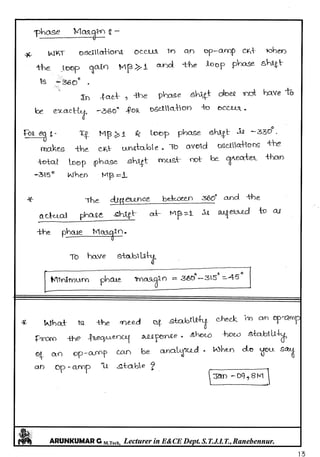 phase Margin :-
* WKT oscillations occurs in an op-amp CKt when
the loop gain Mβ ≥ 1 and the loop phase shift
is -360°.
In fact, the phase shift does not have to
be exactly -360° for oscillation to occur.
For eg :- If Mβ ≥ 1 & loop phase shift is -330°.
makes the ckt unstable. To avoid oscillations the
total loop phase shift must not be greater than
-315° when Mβ = 1.
* The difference between 360° and the
actual phase shift at Mβ = 1 is referred to as
the phase Margin.
To have stability,
Minimum phase margin = 360° - 315° = 45°
* What is the need of stability check in an op-amp
From the frequency response. Show how stability
of an op-amp can be analyzed. When do you say
an op-amp is stable ?
Jan - 09, 8M
ARUNKUMAR G M.Tech, Lecturer in E&CE Dept. S.T.J.I.T., Ranebennur.
13